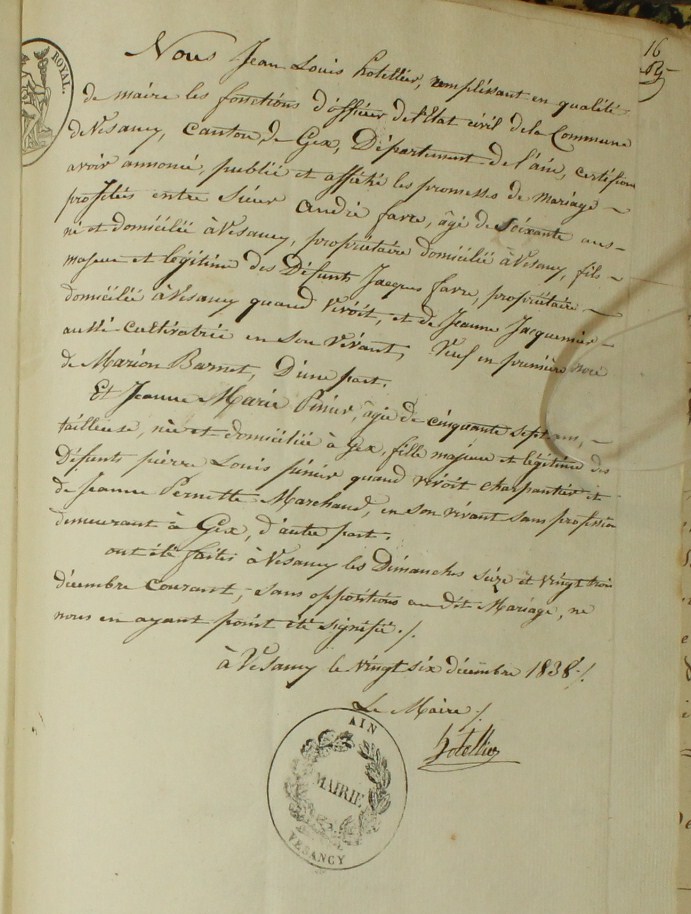 ROYAL.
16
Nous Jean Louis hotellier, remplissant en qualité
de maire les fonctions d'officier de l'Etat civil de la Commune
de Vésancy, canton de Gex, Département de l'ain, certifions
avoir annoncé, publié et affiché les promesses de Mariage
projetés entre Sieur andré favre, âgé de soixante ans
né et domicilié à Vésancy, propriétaire domicilié à Vésancy, fils
majeur et légitime des Défunts Jacques favre, propriétaire
domicilié à Vésancy quand vivoit, et de Jeanne Jacquemier
aussi cultivatrice en son vivant, Veuf en première noce
de Marion Barnet, D'une part.
Et Jeanne Marie Pinier, âgée de cinquante sept ans,
tailleuse, née et domiciliée à Gex, fille majeure et légitime des
Défunts pierre Louis pinier quand vivoit charpantier et
de Jeanne Pernette Marchand, en son vivant sans profession
demeurant à Gex, d'autre part.
ont été faites à Vésancy les Dimanches seize et vingt trois
décembre courant, sans oppositions au dit Mariage, ne
nous en ayant point été signifié ./.
à Vésancy le vingt six décembre 1838 ./.
Le Maire ./.
hotellier
AIN
MAIRIE
VESANCY